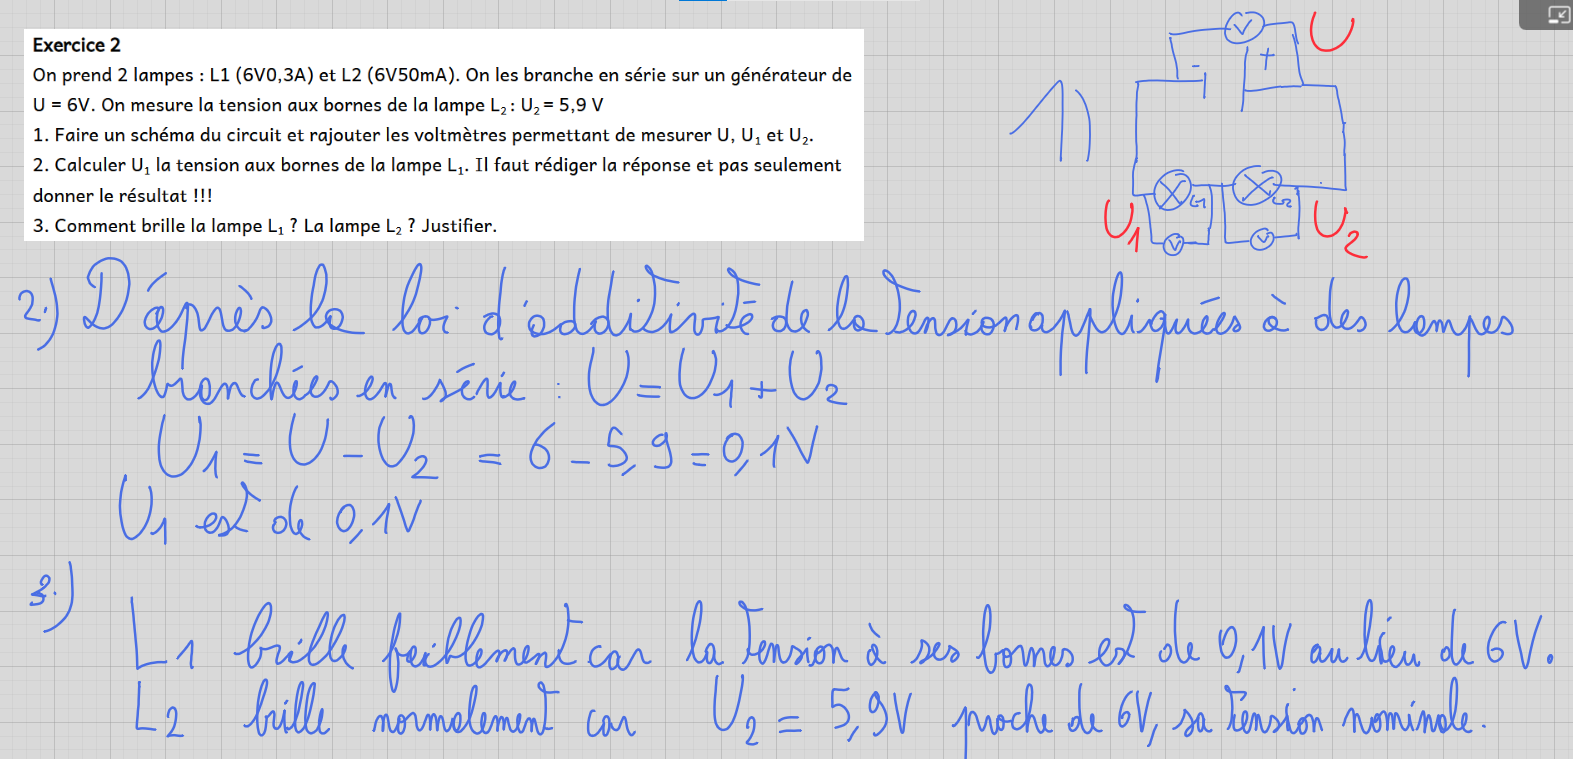 Exercice 2
On prend 2 lampes : L1 (6V0,3A) et L2 (6V50mA). On les branche en série sur un générateur de
U = 6V. On mesure la tension aux bornes de la lampe L₂ : U₂ = 5,9 V
1. Faire un schéma du circuit et rajouter les voltmètres permettant de mesurer U, U₁ et U₂.
2. Calculer U₁ la tension aux bornes de la lampe L₁. Il faut rédiger la réponse et pas seulement
donner le résultat !!!
3. Comment brille la lampe L₁ ? La lampe L₂ ? Justifier.
1)
V
U
- +
L1 L2
U1 V V U2
2.) D'après la loi d'additivité de la tension appliquées à des lampes
branchées en série : U = U1 + U2
U1 = U - U2 = 6 - 5,9 = 0,1V
U1 est de 0,1V
3.)
L1 brille faiblement car la tension à ses bornes est de 0,1V au lieu de 6V.
L2 brille normalement car U2 = 5,9V proche de 6V, sa tension nominale.